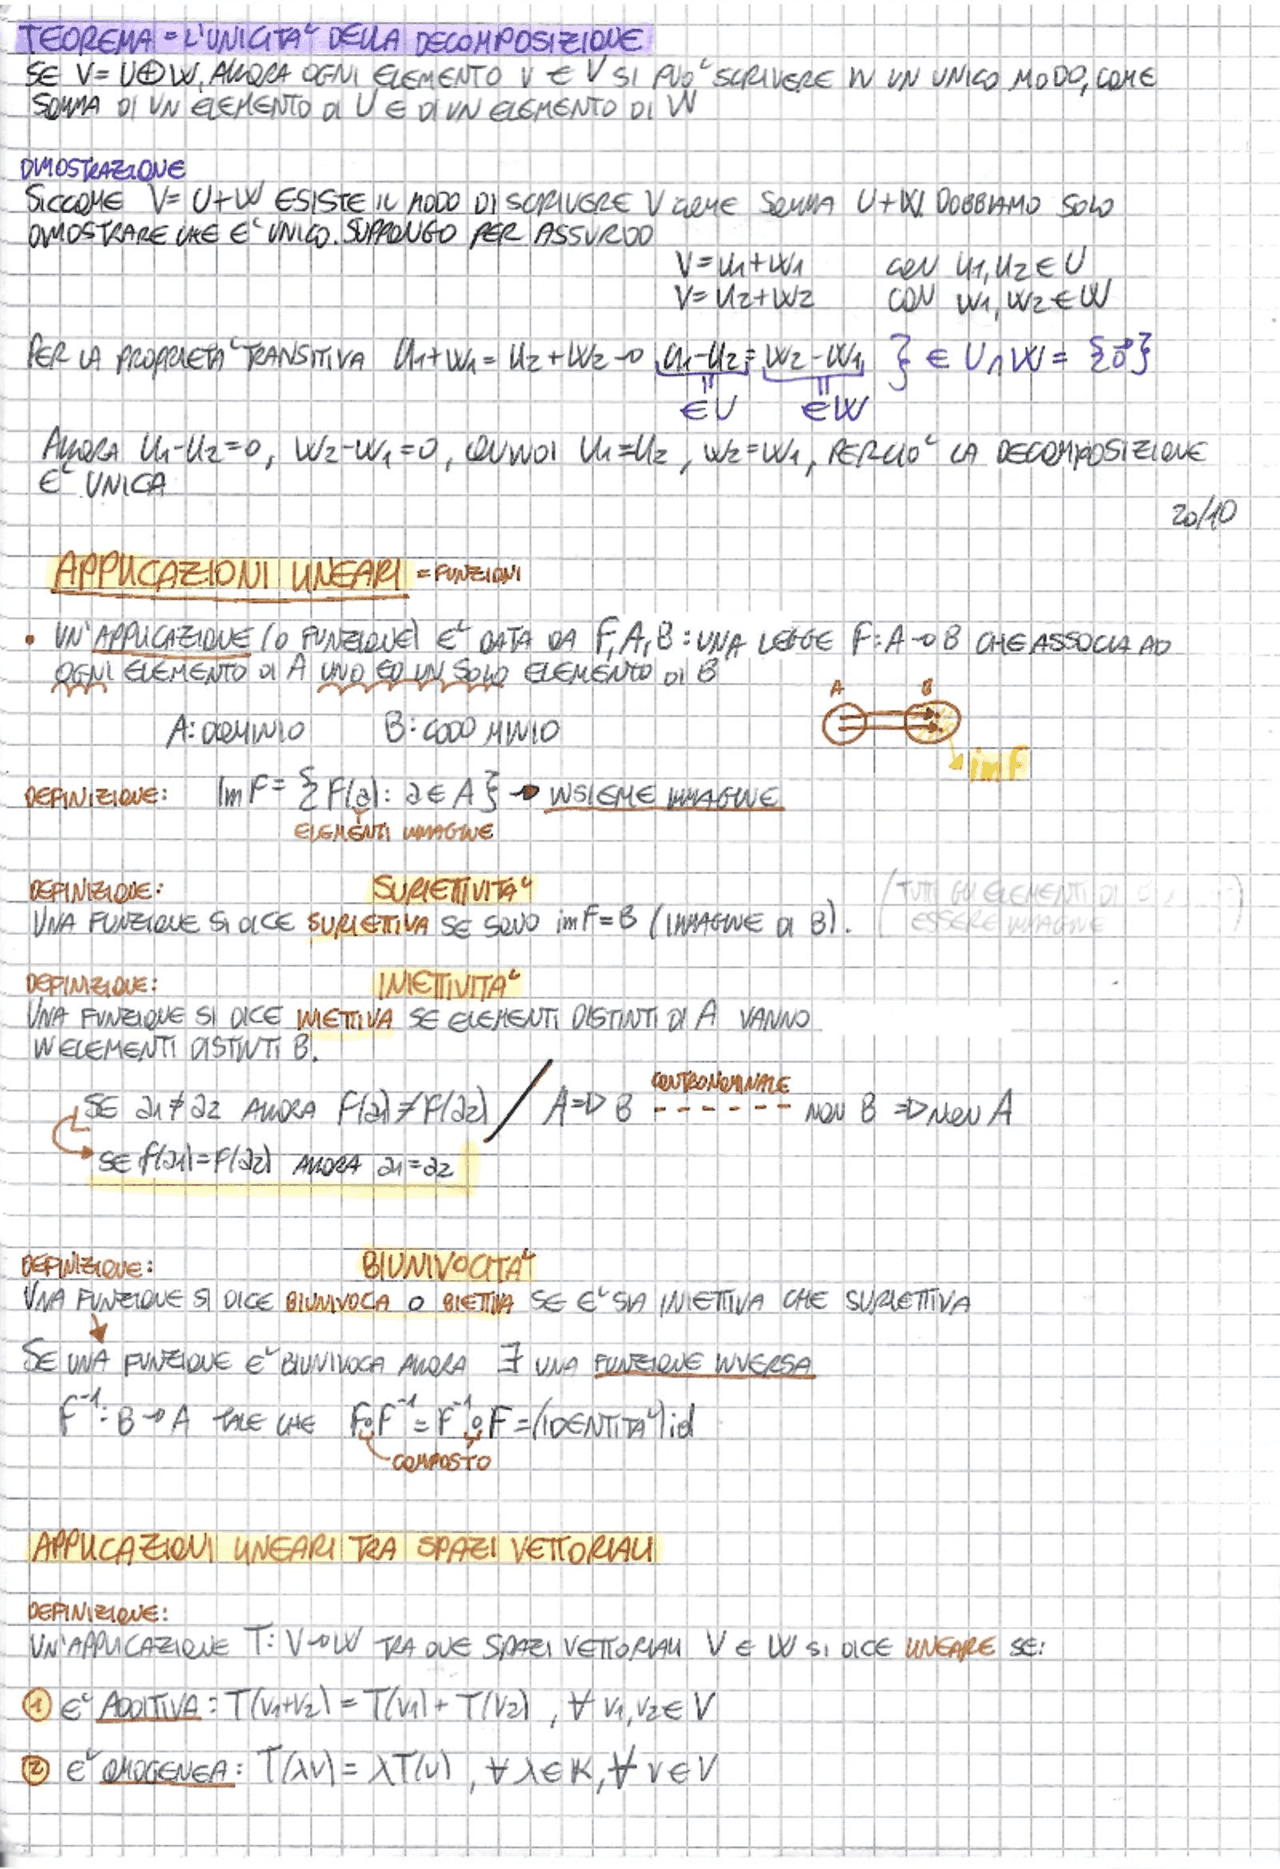 TEOREMA = L'UNICITA' DELLA DECOMPOSIZIONE
SE V = U⊕W, ALLORA OGNI ELEMENTO v ∈ V SI PUO' SCRIVERE IN UN UNICO MODO, COME
SOMMA DI UN ELEMENTO DI U E DI UN ELEMENTO DI W
DIMOSTRAZIONE
SICCOME V = U+W ESISTE IL MODO DI SCRIVERE V COME SOMMA U+W. DOBBIAMO SOLO
DIMOSTRARE CHE E' UNICO. SUPPONGO PER ASSURDO
V = u₁+w₁ CON u₁,u₂ ∈ U
V = u₂+w₂ CON w₁,w₂ ∈ W
PER LA PROPRIETA' TRANSITIVA u₁+w₁ = u₂+w₂ → u₁-u₂ = w₂-w₁ } ∈ U∩W = {0⃗}
∈U ∈W
ALLORA u₁-u₂=0, w₂-w₁=0, QUINDI u₁=u₂, w₂=w₁, PERCIO' LA DECOMPOSIZIONE
E' UNICA
20/10
APPLICAZIONI LINEARI = FUNZIONI
• UN'APPLICAZIONE (O FUNZIONE) E' DATA DA F, A, B : UNA LEGGE F: A → B CHE ASSOCIA AD
OGNI ELEMENTO DI A UNO ED UN SOLO ELEMENTO DI B
A B
A: DOMINIO B: CODOMINIO
im F
DEFINIZIONE: Im F = { F(a) : a ∈ A } → INSIEME IMMAGINE
ELEMENTI IMMAGINE
DEFINIZIONE: SURIETTIVITA'
UNA FUNZIONE SI DICE SURIETTIVA SE SOLO im F = B (IMMAGINE DI B). (TUTTI GLI ELEMENTI DI
ESSERE IMMAGINE)
DEFINIZIONE: INIETTIVITA'
UNA FUNZIONE SI DICE INIETTIVA SE ELEMENTI DISTINTI DI A VANNO
IN ELEMENTI DISTINTI B.
SE a₁ ≠ a₂ ALLORA F(a₁) ≠ F(a₂) / A ⇒ B CONTRONOMINALE ------ NON B ⇒ NON A
SE f(a₁) = F(a₂) ALLORA a₁ = a₂
DEFINIZIONE: BIUNIVOCITA'
UNA FUNZIONE SI DICE BIUNIVOCA O BIETTIVA SE E' SIA INIETTIVA CHE SURIETTIVA
SE UNA FUNZIONE E' BIUNIVOCA ALLORA ∃ UNA FUNZIONE INVERSA
F⁻¹: B → A TALE CHE F∘F⁻¹ = F⁻¹∘F = (IDENTITA') id
COMPOSTO
APPLICAZIONI LINEARI TRA SPAZI VETTORIALI
DEFINIZIONE:
UN'APPLICAZIONE T: V → W TRA DUE SPAZI VETTORIALI V E W SI DICE LINEARE SE:
① E' ADDITIVA : T(v₁+v₂) = T(v₁) + T(v₂) , ∀ v₁,v₂ ∈ V
② E' OMOGENEA : T(λv) = λT(v) , ∀ λ ∈ K, ∀ v ∈ V